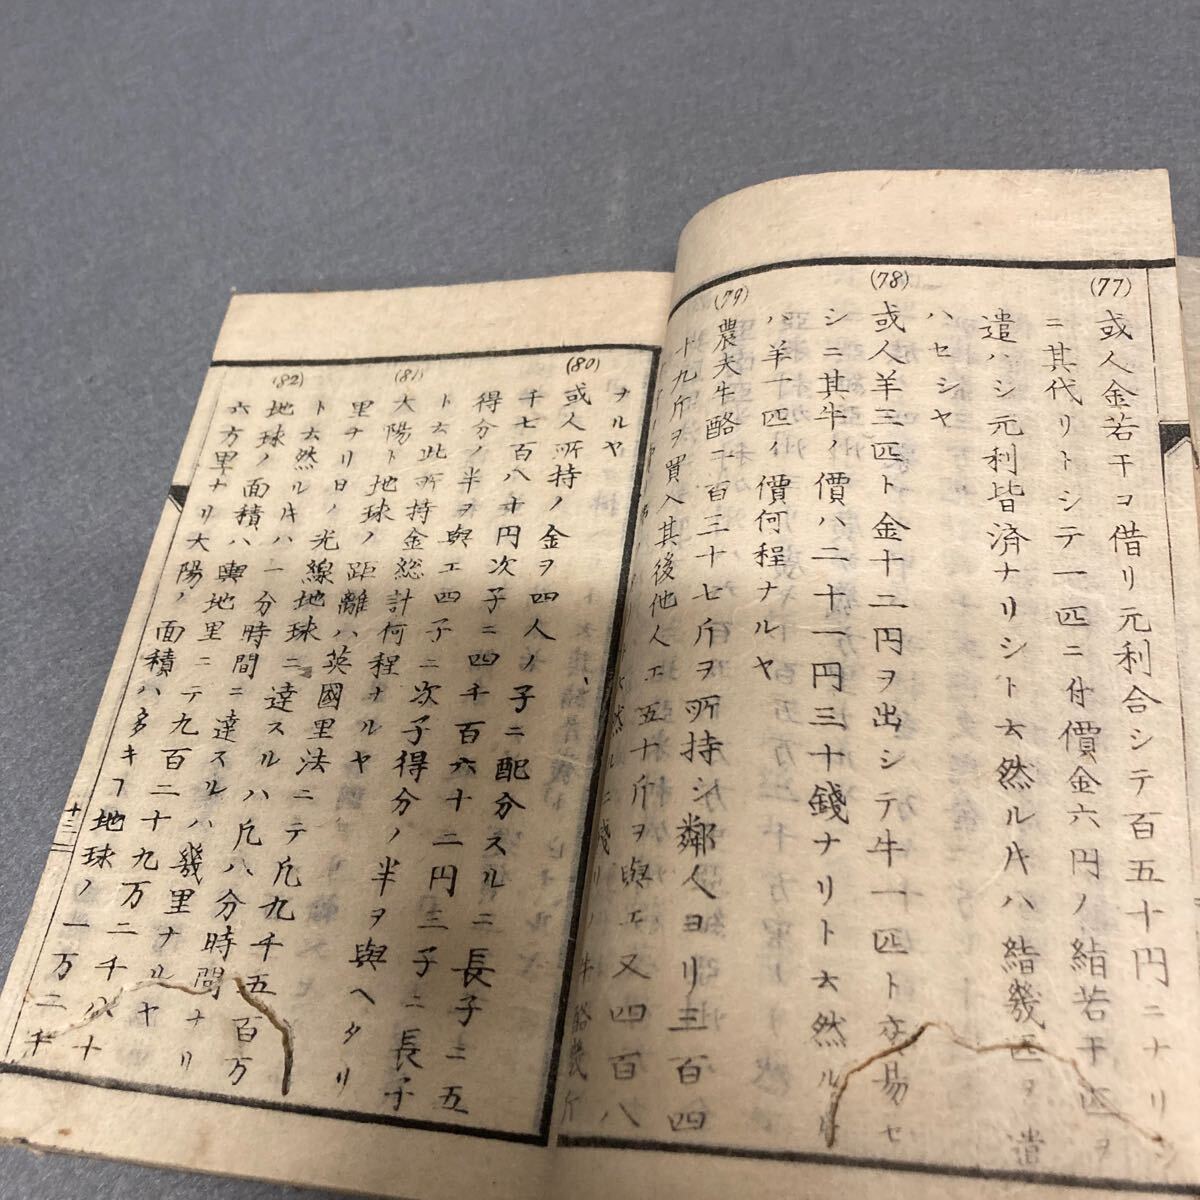 (77) 或人金若干ヲ借リ元利合シテ百五十円ニナリシ
ニ其代リトシテ一匹ニ付價金六円ノ絹若干匹ヲ
遣ハシ元利皆済ナリシト云然ルトキハ絹幾匹ヲ遣
ハセシヤ
(78) 或人羊三匹ト金十二円ヲ出シテ牛一匹ト交易セ
シニ其牛ノ價ハ二十一円三十錢ナリト云然ルトキ
ハ羊一匹ノ價何程ナルヤ
(79) 農夫牛酪二百三十七斤ヲ所持シ鄰人ヨリ三百四
十九斤ヲ買入其後他人エ五十斤ヲ與エ又四百八
牛酪幾斤
ナルヤ
(80) 或人所持ノ金ヲ四人ノ子ニ配分スルニ長子ニ五
千七百八十円次子ニ四千百六十二円三子ニ長子
得分ノ半ヲ與エ四子ニ次子得分ノ半ヲ與ヘタリ
ト云此所持金総計何程ナルヤ
(81) 大陽ト地球ノ距離ハ英國里法ニテ凡九千五百万
里ナリ日ノ光線地球ニ達スルハ凡八分時間ナリ
ト云然ルトキハ一分時間ニ達スルハ幾里ナルヤ
(82) 地球ノ面積ハ輿地里ニテ九百二十九万二千八十
六方里ナリ大陽ノ面積ハ多キヿ地球ノ一万二千
十三